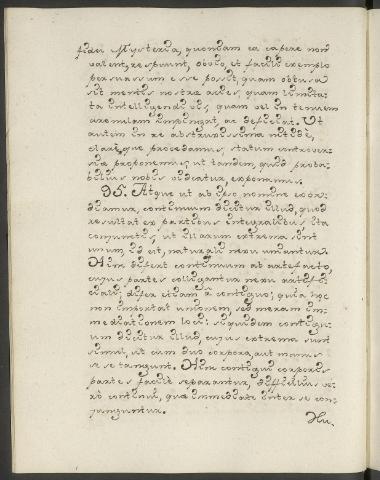 fidei Mysteria, quondam ea capere non
valent, respuunt, obvio, et facili exemplo
persuassum esse possit, quam obtusa
sit mentis nostræ acies, quam limita-
ta intelligendi vis, quam vel in tenuem
aranulam impingat, ac deficiat. Ut
autem in re abstrusissima nitidè,
clarè que procedamus, statum controver-
siæ proponemus, ut tandem, quid proba-
bilius nobis videatur, exponamus.
95. Atque ut ab ipso nomine exor-
diamur, continuum dicitur illud, quod
resultat ex partibus integralibus ita
conjunctis, ut illarum extrema sint
unum, id est, naturali nexu uniantur.
Hinc differt continuum ab artefacto,
cujus partes colligantur nexu artifi-
ciali; differ etiam à contiguo; quia hoc
non importat unionem, sed meram im-
mediationem loci: siquidem contigu-
um dicitur illud, cujus extrema sunt
simul, ut cum duo corpora, aut manus
se se tangunt. Hinc contigui corporis
partes facilè separantur, difficilius ve-
rò continui, quæ immediate inter se con-
junguntur.